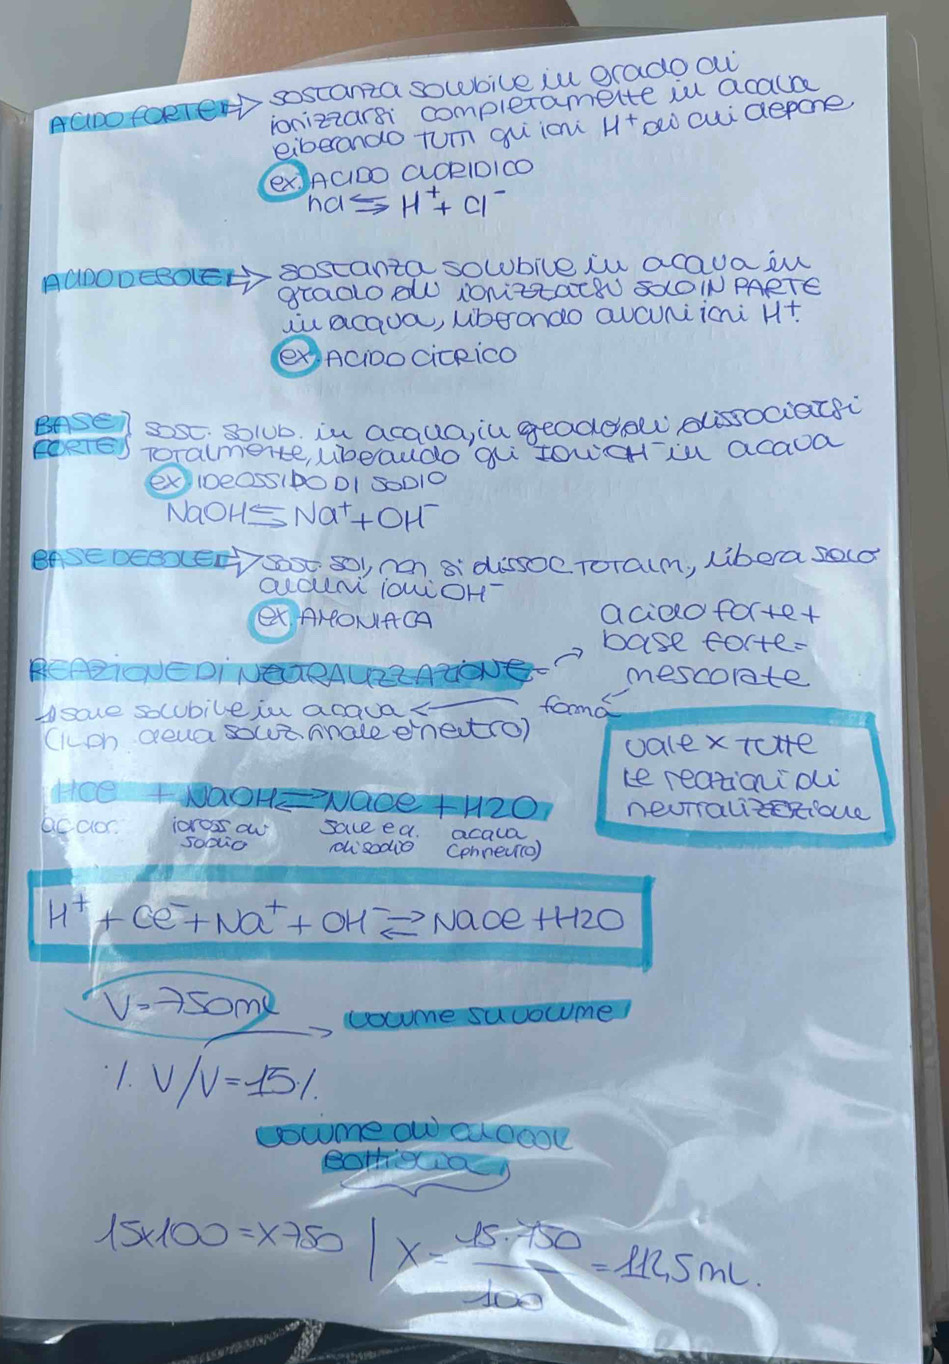 ACIDO FORTE → sostanza solubile in grado di
ionizzarsi completamente in acqua
liberando TUTTI gli ioni H+ di cui dispone
ex. ACIDO CLORIDICO
hcl ⇆ H+ + Cl-
ACIDO DEBOLE → sostanza solubile in acqua in
grado di ionizzarsi SOLO IN PARTE
in acqua, liberando alcuni ioni H+.
ex. ACIDO CITRICO
BASE
FORTE } sost. solub. in acqua, in grado di dissociarsi
totalmente, liberando gli IONI OH- in acqua
ex IDROSSIDO DI SODIO
NaOH ⇆ Na+ + OH-
BASE DEBOLE → sost. sol, non si dissoc TOTALM, libera solo
alcuni ioni OH-
ex. AMONIACA
REAZIONE DI NEUTRALIZZAZIONE = → acido forte +
base forte =
mescolate
forma
→ sale solubile in acqua ←
(il ph della soluz. finale è neutro)
vale x tutte
le reazioni di
neutralizzazione
HCl + NaOH ⇄ NaCl + H2O
ac clor. idross di sodio sale cl. di sodio acqua (ph neutro)
H+ + Cl- + Na+ + OH- ⇄ NaCl + H2O
V = 750ml
volume su volume
% V/V = 15%
volume di alcool
bottiglia
15x100 = x 750 | x = 15·750 / 100 = 112,5 mL.